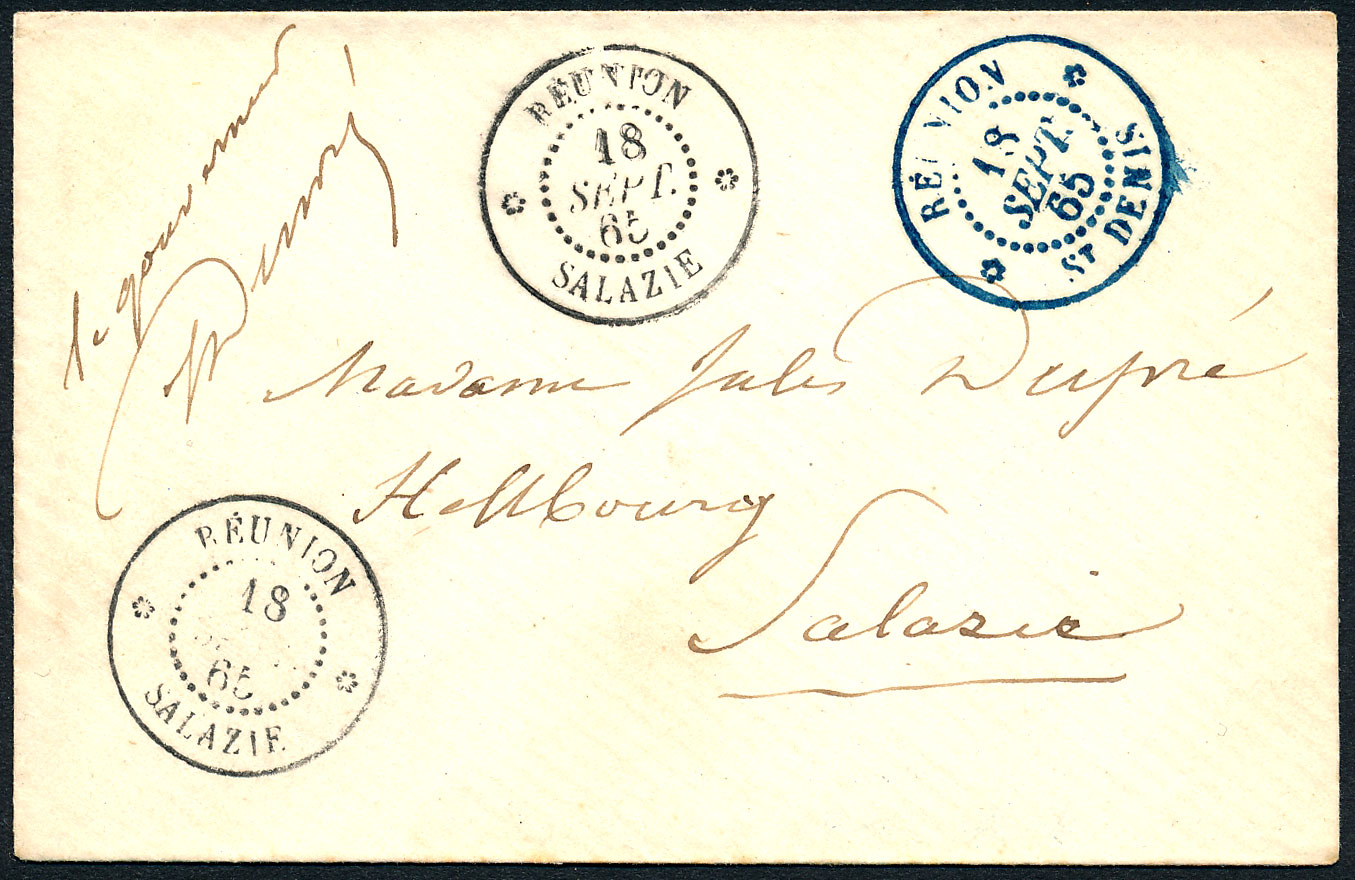 le gouverneur
Dupré
RÉUNION
18
SEPT.
65
SALAZIE
RÉUNION
18
SEPT.
65
St DENIS
Madame Jules Dupré
Hellbourg
Salazie
RÉUNION
18
65
SALAZIE